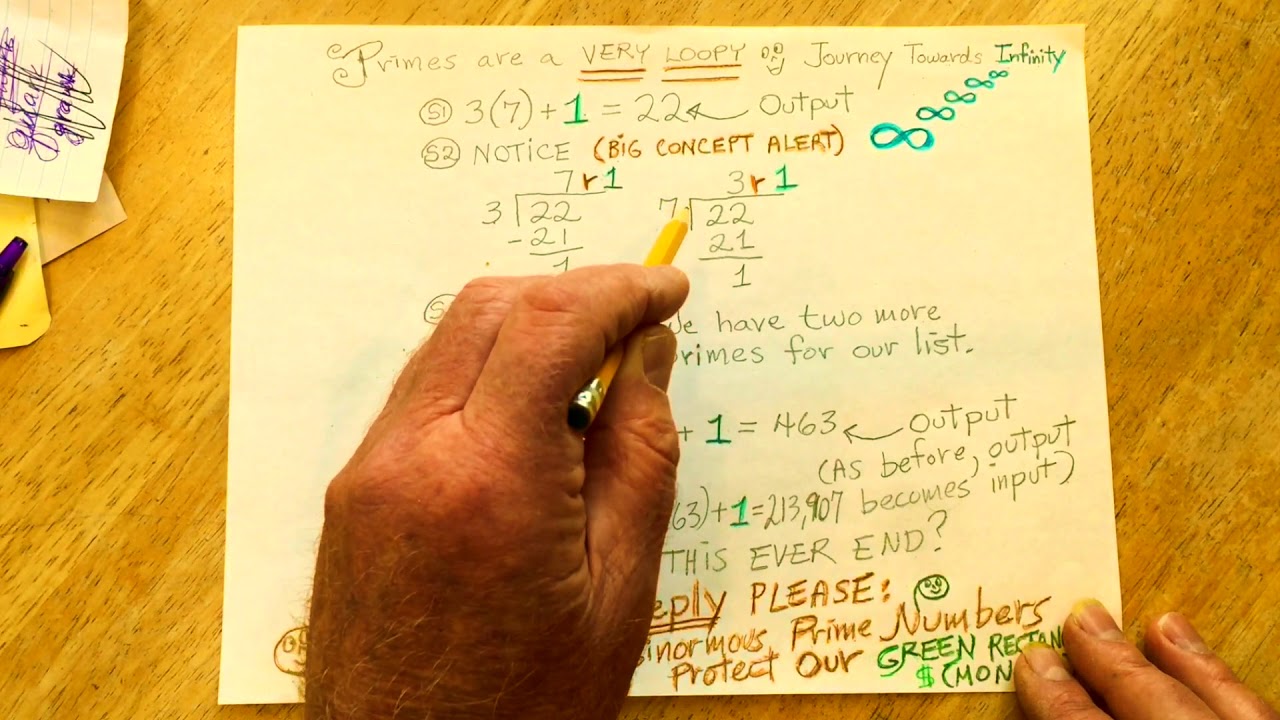 Primes are a VERY LOOPY Journey Towards Infinity
S1 3(7)+1=22 Output
S2 NOTICE (BIG CONCEPT ALERT)
7r1 3r1
3 22 7 22
-21 21
1 1
We have two more
primes for our list.
+ 1 = 463 Output
(As before, output
becomes input)
63)+1=213,907
THIS EVER END?
eply PLEASE:
Prime Numbers
Protect Our GREEN
$(MON